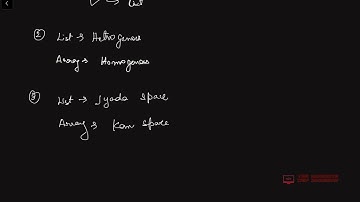 → List
② List → Hetrogenous
Array → Homogenous
③ List → Jyada space
Array → Kam space